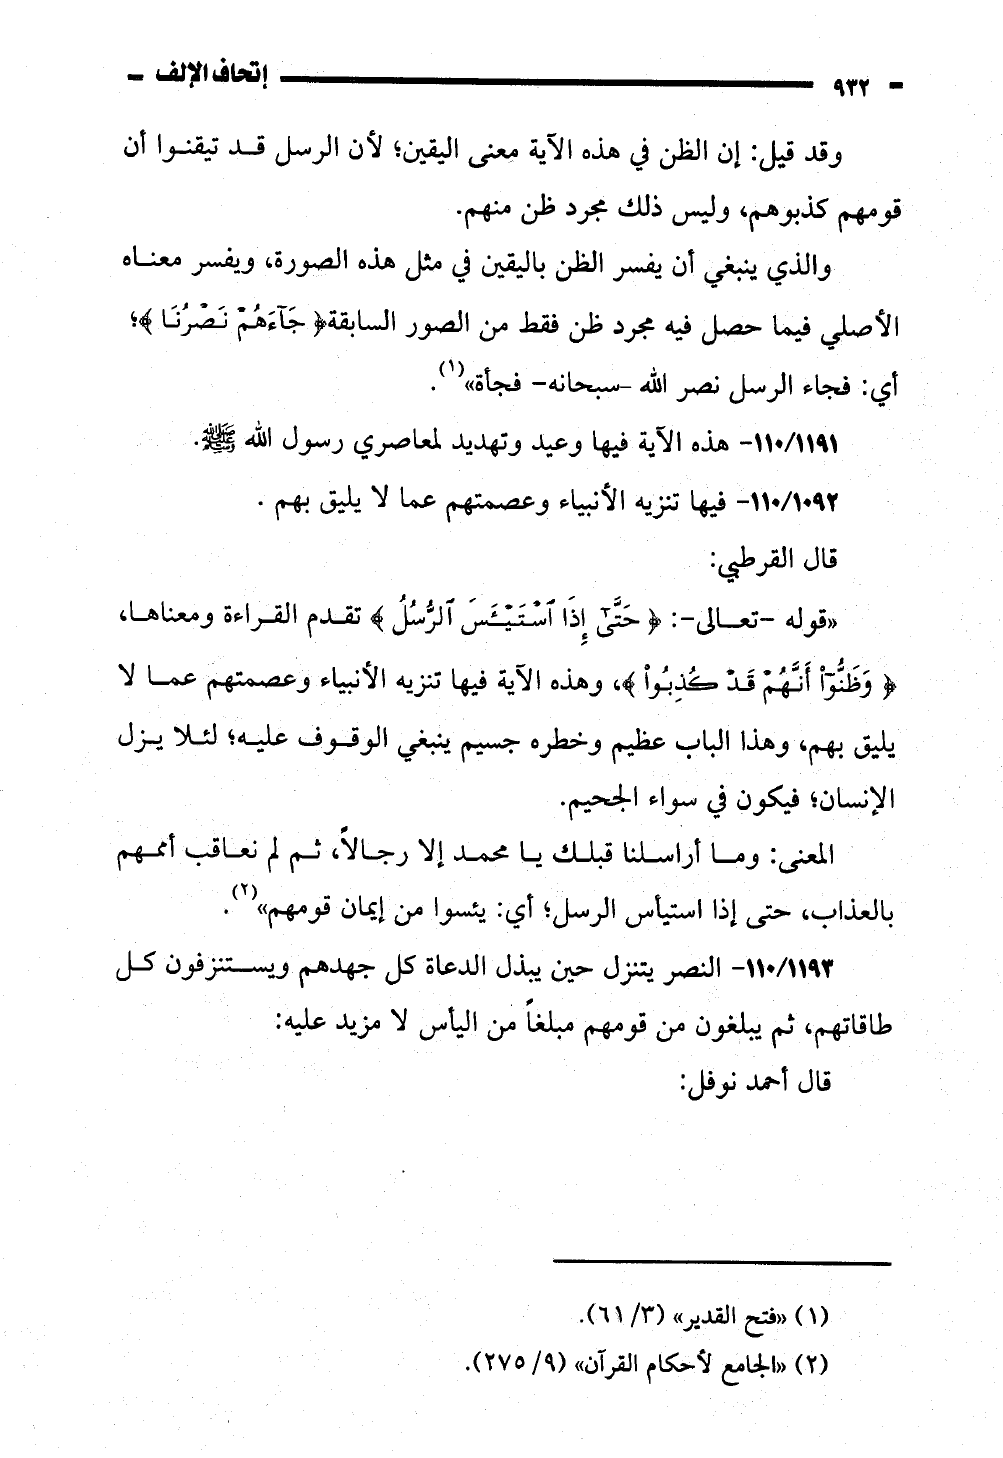 ٩٣٢ إتحاف الإلف
وقد قيل: إن الظن في هذه الآية معنى اليقين؛ لأن الرسل قـد تيقنـوا أن
قومهم كذبوهم، وليس ذلك مجرد ظن منهم.
والذي ينبغي أن يفسر الظن باليقين في مثل هذه الصورة، ويفسر معنـاه
الأصلي فيما حصل فيه مجرد ظن فقط من الصور السابقة﴿ جَآءَهُمْ نَصْرُنَا ﴾؛
أي: فجاء الرسل نصر الله -سبحانه- فجأة»(١).
١١٠/١١٩١- هذه الآية فيها وعيد وتهديد لمعاصري رسول الله ﷺ.
١١٠/١٠٩٢- فيها تنزيه الأنبياء وعصمتهم عما لا يليق بهم .
قال القرطبي:
«قوله -تعـالى-: ﴿ حَتَّىٰٓ إِذَا ٱسْتَيْـَٔسَ ٱلرُّسُلُ ﴾ تقـدم القـراءة ومعناهـا،
﴿ وَظَنُّوٓا۟ أَنَّهُمْ قَدْ كُذِبُوا۟ ﴾، وهذه الآية فيها تنزيه الأنبياء وعصمتهم عمـا لا
يليق بهم، وهذا الباب عظيم وخطره جسيم ينبغي الوقـوف عليـه؛ لئـلا يـزل
الإنسان؛ فيكون في سواء الجحيم.
المعنى: ومـا أراسـلنا قبلـك يـا محمـد إلا رجـالاً، ثـم لم نعـاقب أممـهم
بالعذاب، حتى إذا استيأس الرسل؛ أي: يئسوا من إيمان قومهم»(٢).
١١٠/١١٩٣- النصر يتنزل حين يبذل الدعاة كل جهدهم ويسـتنزفون كـل
طاقاتهم، ثم يبلغون من قومهم مبلغاً من اليأس لا مزيد عليه:
قال أحمد نوفل:
(١) «فتح القدير» (٣/ ٦١).
(٢) «الجامع لأحكام القرآن» (٩/ ٢٧٥).